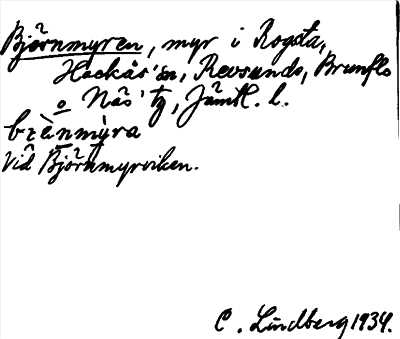 Björnmyren, myr i Rogsta,
Hackås' sn, Revsunds, Brunflo
o Näs' tg, Jämtl. l.
bz̀ànmỳra
Vid Björnmyrviken.
C. Lindberg 1934.